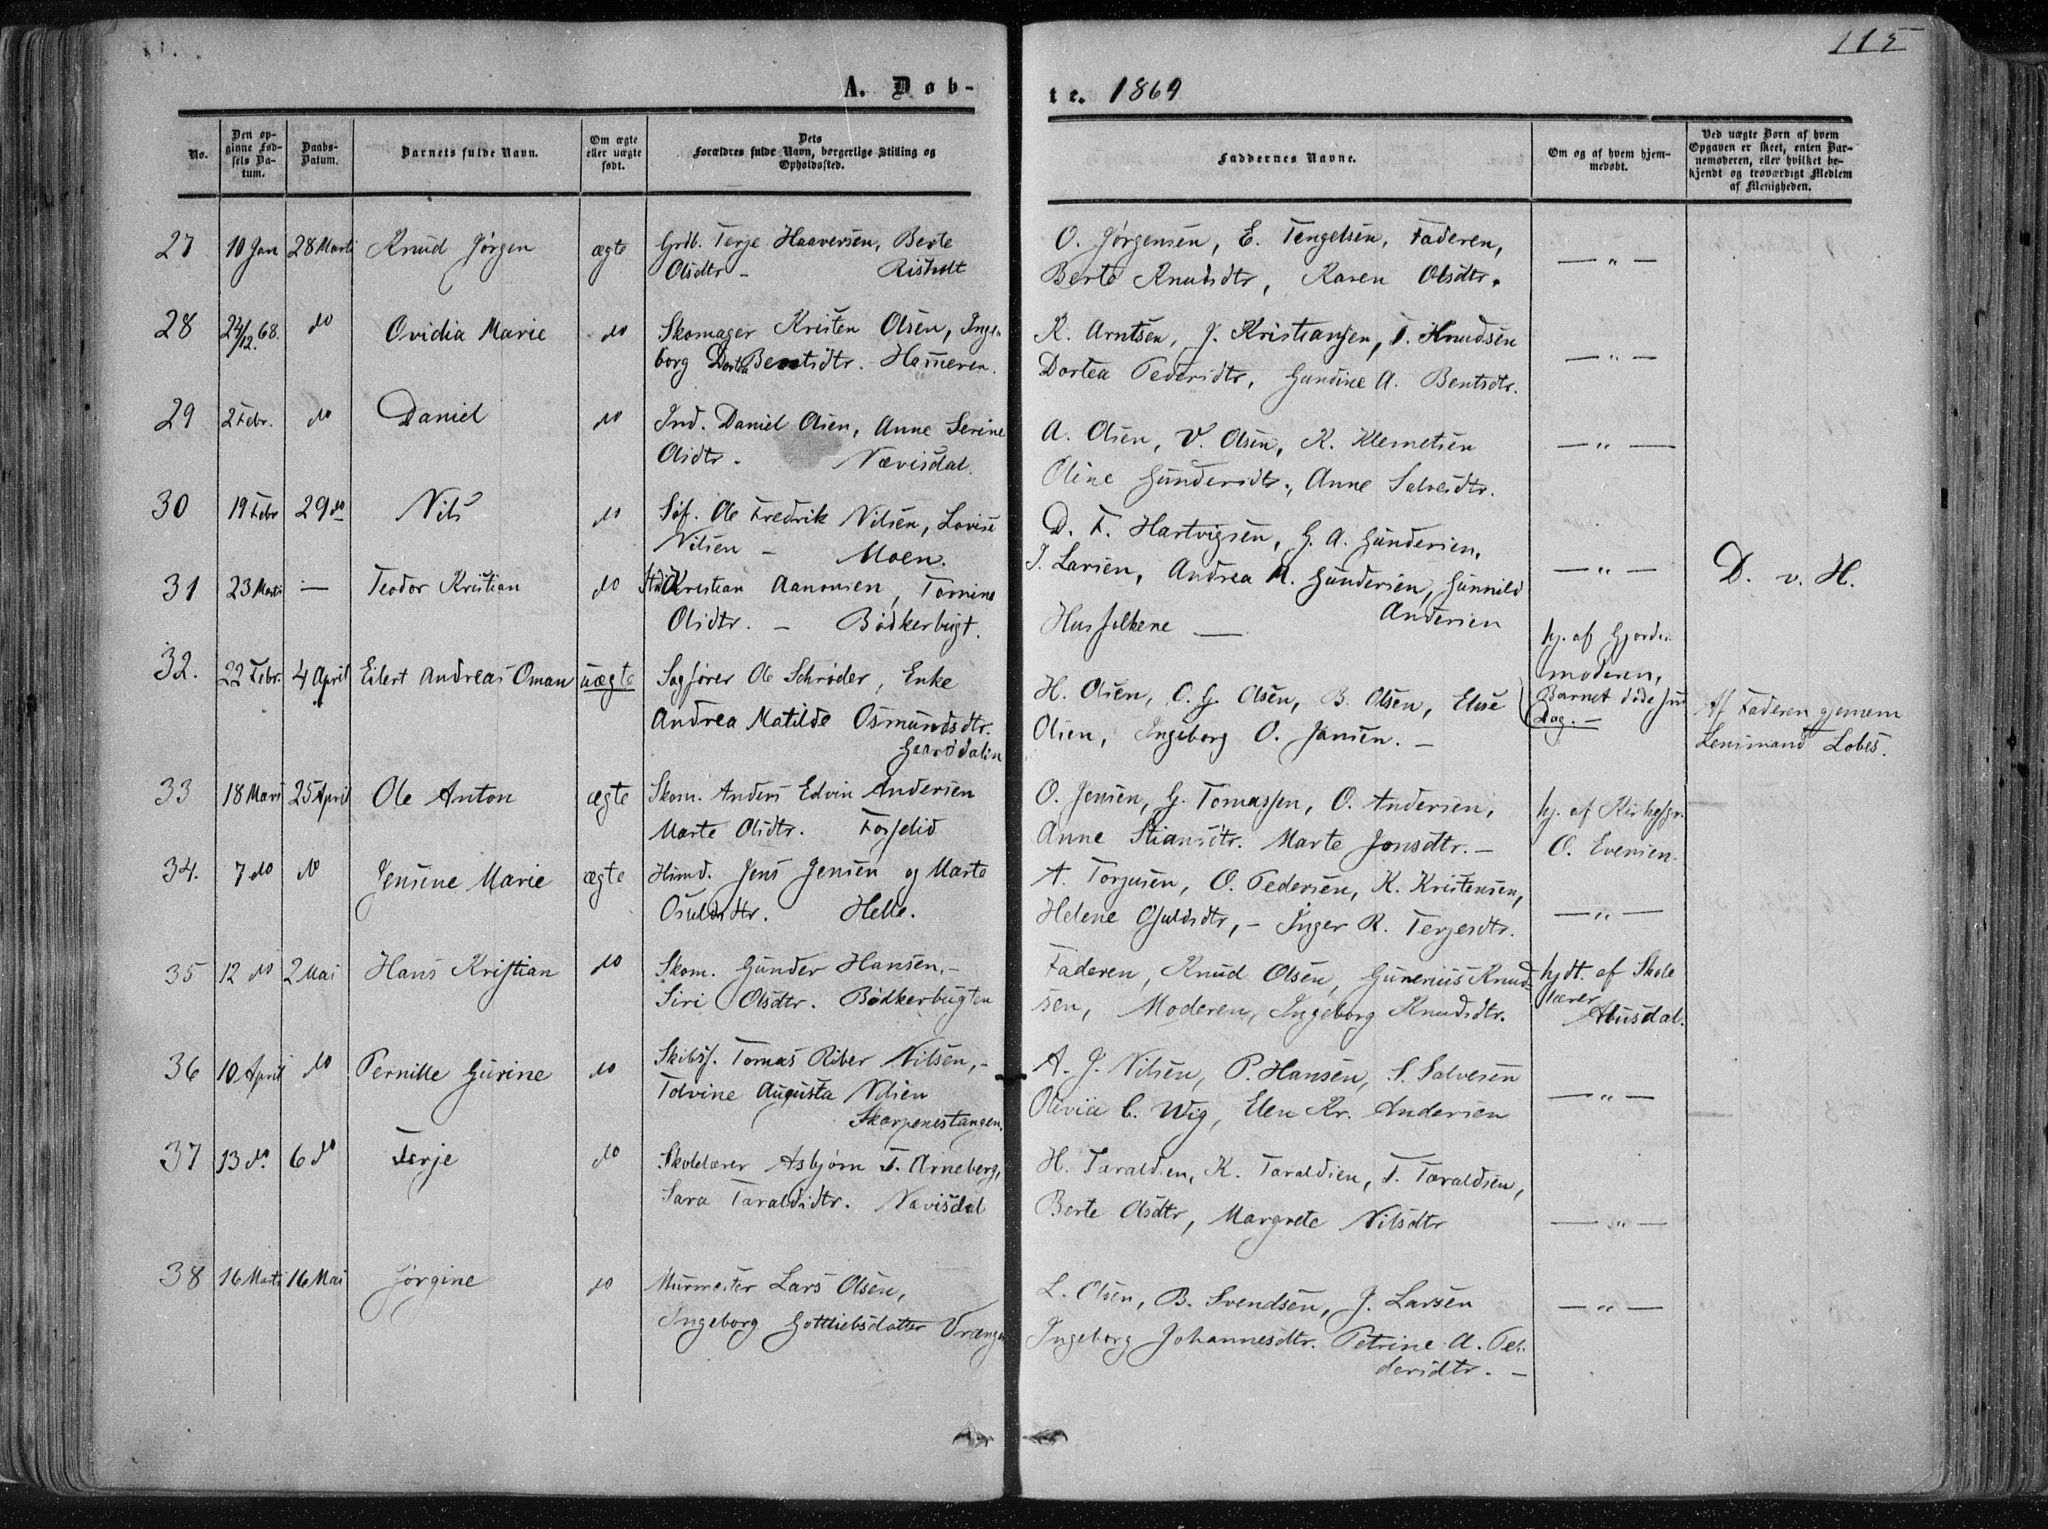 115
A. Døb-
te. 1869
No.
Den opginne Fødsels Datum.
Daabs-Datum.
Barnets fulde Navn.
Om ægte eller uægte født.
Dets Forældres fulde Navn, borgerlige Stilling og Opholdssted.
Faddernes Navne.
Om og af hvem hjemmedøbt.
Ved uægte Børn af hvem Opgaven er skeet, enten Barnemoderen, eller hvilket bekjendt og troværdigt Medlem af Menigheden.
27 10 Jan 28 Marti Knud Jørgen ægte Grdb. Terje Haaversen, Berte O. Jørgensen, E. Tengelsen, Faderen,
Olsdtr - Risholt Berte Knudsdtr, Karen Olsdtr. — " —
28 24/12.68. do Ovidia Marie do Skomager Kristen Olsen, Inge- K. Arntsen, J. Kristiansen, T. Knudsen
borg Dortea Bentsdtr. Hasneren. Dortea Pedersdtr, Gundine A. Bentsdtr. — " —
29 2 Febr. do Daniel do Ind. Daniel Olsen, Anne Serine A. Olsen, V. Olsen, K. Klemetsen — " —
Olsdtr. Nævisdal. Oline Gundersdtr., Anne Salvesdtr.
30 19 Febr 29 do Nils do Søf. Ole Fredrik Nilsen, Lovise D. F. Hartvigsen, G. A. Gundersen,
Nilsen - Moen. J. Larsen, Andrea M. Gundersen, Gunnild — " — D. v. H.
Andersen
31 23 Marti — Teodor Kristian do Kristian Aanonsen, Tomine
Olsdtr. - Bødkerbugt. Husfolkene —
32. 22 Febr. 4 April Eilert Andreas Oman uægte Sagfører Ole Schrøder, Enke H. Olsen, O. G. Olsen, B. Olsen, Else hj. af Gjorde-
moderen,
Andrea Matilde Osmundsdtr. Olsen, Ingeborg O. Jansen. - Barnet døde
Dag. -
Gaarddalen Af Faderen gjennem
Lensmand Lobes.
33 18 Mars 25 April Ole Anton ægte Skom. Anders Edvin Andersen O. Jensen, G. Tomassen, O. Andersen, hj. af
Marte Olsdtr. Fosselid Anne Stiansdtr. Marte Jonsdtr. - O. Evensen.
34. 7 do do Jensine Marie ægte Husmd. Jens Jensen og Marte A. Torjusen, O. Pedersen, K. Kristensen,
Osuldsdtr. Helle. Helene Osuldsdtr, - Inger R. Terjesdtr. — " —
35 12 do 2 Mai Hans Kristian do Skom. Gunder Hansen, - Faderen, Knud Olsen, Gunerius Knud- hjdt. af Skole
Siri Olsdtr. Bødkerbugten sen, Moderen, Ingeborg Knudsdtr. lærer
Abusdal.
36 10 April do Pernille Gurine do Skibsf. Tomas Riber Nilsen, - A. J. Nilsen, P. Hansen, S. Salvesen
Tolvine Augusta Nilsen Olivia C. Wig, Elen Kr. Andersen — " —
Skarpenestangen.
37 13 do. 6 do Terje do Skolelærer Asbjørn T. Arneberg, H. Taraldsen, K. Taraldsen, T. Taraldsen,
Sara Taraldsdtr. Nævisdal Berte Olsdtr, Margrete Nilsdtr — " —
38 16 Marti 16 Mai Jørgine do Murmester Lars Olsen, L. Olsen, B. Svendsen, J. Larsen — " —
Ingeborg Gottliebsdatter Vrænge Ingeborg Johannesdtr. Petrine A. Pe-
dersdtr. -